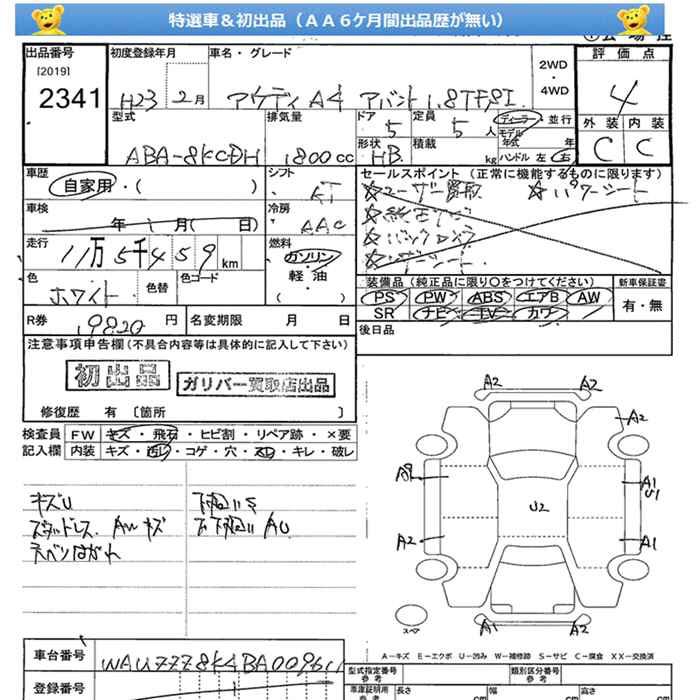 特選車＆初出品（ＡＡ６ケ月間出品歴が無い）
出品番号 初度登録年月 車名・グレード 評価点
[2019]
2341
H23 2月 アウディ A4 アバント 1.8TFSI
2WD・4WD
4
型式 排気量 ドア 定員 ディーラー・並行
モデル年式 年
外装 内装
ABA-8KCDH 1800cc 5 5人
C C
形状 積載 kg ハンドル 左 右
HB
車歴 シフト セールスポイント（正常に機能するものに限ります）
自家用・( )
☆ユーザー買取 ☆パワーシート
☆純正ナビ
☆バックカメラ
車検 年 月( 日) 冷房
AAC
走行 燃料
11万5千459km
ガソリン
軽・油
( )
色 色替 色コード
ホワイト
装備品（純正品に限り○をつけてください） 新車保証書
PS PW ABS エアB AW 有・無
SR ナビ TV カワ
R券 19820円 名変期限 月 日
後日品
注意事項申告欄（不具合内容等は具体的に記入して下さい）
初出品 ガリバー買取店出品
修復歴 有 〔箇所 〕
検査員 FW キズ・飛石・ヒビ割・リペア跡・×要
記入欄 内装 キズ・西レ・コゲ・穴・スレ・キレ・破レ
キズU 下廻りS
スタッドレス. AWキズ 下廻り AU
エバンはがれ
A2 A2
A2
A1
U1
U2
A2 A1
A1 A2
スペア
A－キズ E－エクボ U－凹み W－補修跡 S－サビ C－腐食 XX－交換済
車台番号
WAUZZZ8K4BA0096
登録番号
型式指定番号 参考 類別区分番号 参考
車庫証明用 参考 長さ cm 幅 cm 高さ cm